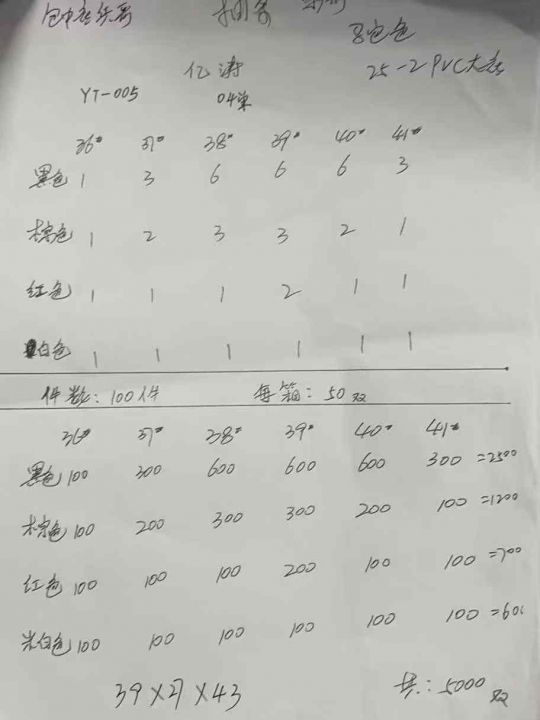 四包色
亿涛 25-2PVC大底
YT-005 04单
36# 37# 38# 39# 40# 41#
黑色 1 3 6 6 6 3
棕色 1 2 3 3 2 1
红色 1 1 1 2 1 1
白色 1 1 1 1 1 1
件数:100件 每箱:50双
36# 37# 38# 39# 40# 41#
黑色 100 300 600 600 600 300 =2500
棕色 100 200 300 300 200 100 =1200
红色 100 100 100 200 100 100 =700
米白色 100 100 100 100 100 100 =600
39×27×43 共:5000双